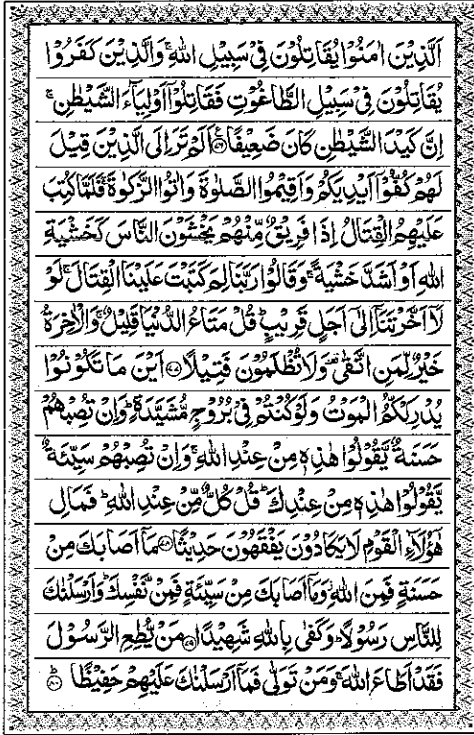 اَلَّذِيْنَ اٰمَنُوْا يُقَاتِلُوْنَ فِىْ سَبِيْلِ اللّٰهِ ۚ وَالَّذِيْنَ كَفَرُوْا
يُقَاتِلُوْنَ فِىْ سَبِيْلِ الطَّاغُوْتِ فَقَاتِلُوْۤا اَوْلِيَآءَ الشَّيْطٰنِ ۚ
اِنَّ كَيْدَ الشَّيْطٰنِ كَانَ ضَعِيْفًا ﴿۷۶﴾ اَلَمْ تَرَ اِلَى الَّذِيْنَ قِيْلَ
لَهُمْ كُفُّوْۤا اَيْدِيَكُمْ وَاَقِيْمُوا الصَّلٰوةَ وَاٰتُوا الزَّكٰوةَ فَلَمَّا كُتِبَ
عَلَيْهِمُ الْقِتَالُ اِذَا فَرِيْقٌ مِّنْهُمْ يَخْشَوْنَ النَّاسَ كَخَشْيَةِ
اللّٰهِ اَوْ اَشَدَّ خَشْيَةً ۚ وَقَالُوْا رَبَّنَا لِمَ كَتَبْتَ عَلَيْنَا الْقِتَالَ ۚ لَوْ
لَاۤ اَخَّرْتَنَاۤ اِلٰٓى اَجَلٍ قَرِيْبٍ ؕ قُلْ مَتَاعُ الدُّنْيَا قَلِيْلٌ ۚ وَالْاٰخِرَةُ
خَيْرٌ لِّمَنِ اتَّقٰى ۟ وَلَا تُظْلَمُوْنَ فَتِيْلًا ﴿۷۷﴾ اَيْنَ مَا تَكُوْنُوْا
يُدْرِكْكُّمُ الْمَوْتُ وَلَوْ كُنْتُمْ فِىْ بُرُوْجٍ مُّشَيَّدَةٍ ؕ وَاِنْ تُصِبْهُمْ
حَسَنَةٌ يَّقُوْلُوْا هٰذِهٖ مِنْ عِنْدِ اللّٰهِ ۚ وَاِنْ تُصِبْهُمْ سَيِّئَةٌ
يَّقُوْلُوْا هٰذِهٖ مِنْ عِنْدِكَ ؕ قُلْ كُلٌّ مِّنْ عِنْدِ اللّٰهِ ؕ فَمَالِ
هٰۤؤُلَآءِ الْقَوْمِ لَا يَكَادُوْنَ يَفْقَهُوْنَ حَدِيْثًا ﴿۷۸﴾ مَاۤ اَصَابَكَ مِنْ
حَسَنَةٍ فَمِنَ اللّٰهِ ۫ وَمَاۤ اَصَابَكَ مِنْ سَيِّئَةٍ فَمِنْ نَّفْسِكَ ؕ وَاَرْسَلْنٰكَ
لِلنَّاسِ رَسُوْلًا ؕ وَكَفٰى بِاللّٰهِ شَهِيْدًا ﴿۷۹﴾ مَنْ يُّطِعِ الرَّسُوْلَ
فَقَدْ اَطَاعَ اللّٰهَ ۚ وَمَنْ تَوَلّٰى فَمَاۤ اَرْسَلْنٰكَ عَلَيْهِمْ حَفِيْظًا ؕ ﴿۸۰﴾